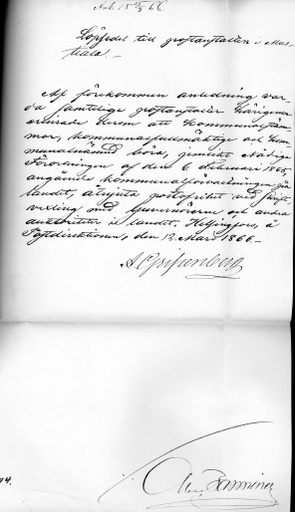 Löpsedel till postanstalten i Mus-
tiala.
Af förekommen anledning var-
da samtelige postanstalter härigenom
erinrade derom att kommunalstäm-
mor, kommunalfullmäktige och kom-
munalnämnd böra, jemlikt Nådiga
Förordningen af den 6 Februari 1865
angående kommunalförvaltningen på
landet, åtnjuta postfrihet vid skrift-
vexling med Guvernörerne och andra
autoriteter i landet. Helsingfors, å
Postdirektionen, den 12 Mars 1866.